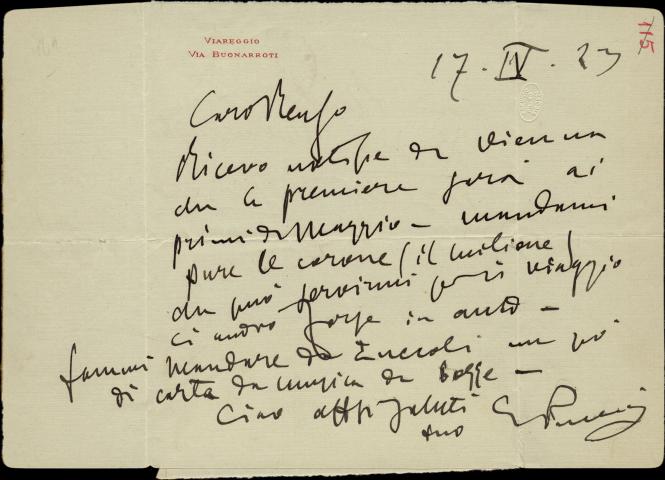 115
VIAREGGIO
VIA BUONARROTI
17.IV.23
Caro Renzo
Ricevo notizie da Vienna
che la premiere sarà ai
primi di Maggio - mandami
pure le corone (il milione)
che può servirmi per il viaggio
ci andrò forse in auto -
fammi mandare da Zuccoli un pò
di carta da musica da bozze -
Ciao affzi saluti
tuo G Puccini